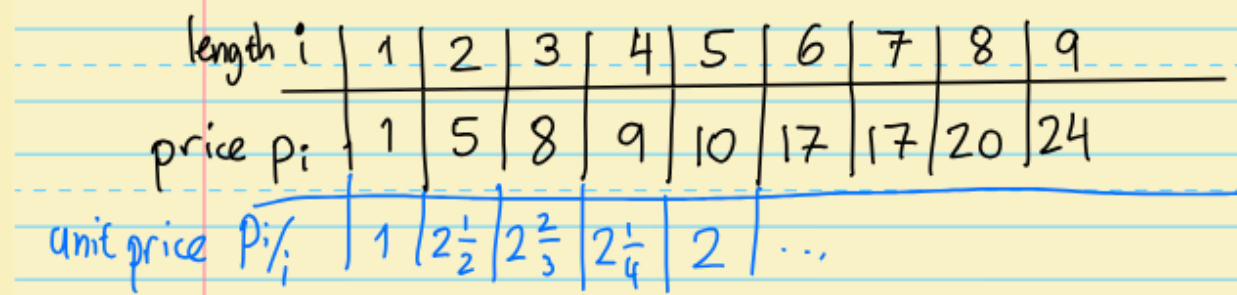 length i | 1 | 2 | 3 | 4 | 5 | 6 | 7 | 8 | 9
price pi | 1 | 5 | 8 | 9 | 10 | 17 | 17 | 20 | 24
unit price Pi/i | 1 | 2 1/2 | 2 2/3 | 2 1/4 | 2 | ...